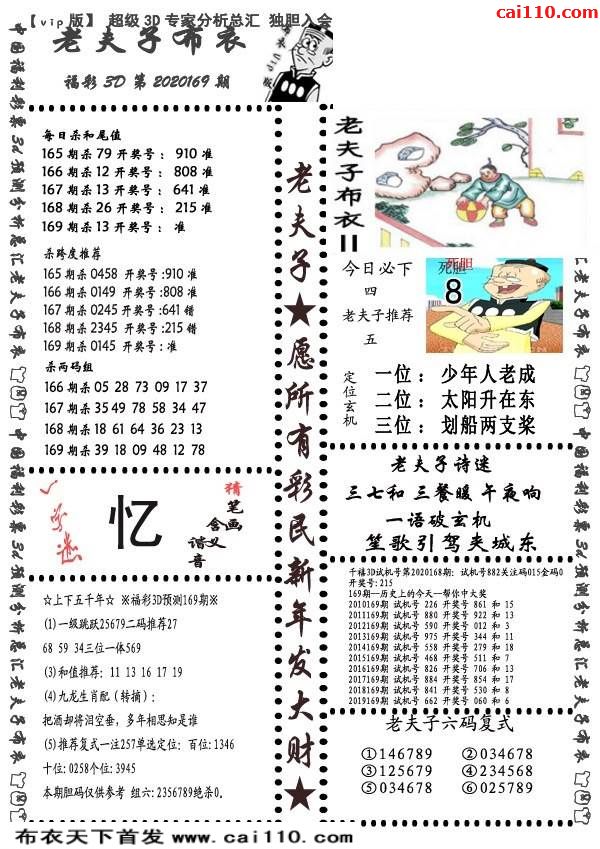 cai110.com
【vip版】 超级3D专家分析总汇 独胆入会
老夫子布衣
福彩3D第2020169期
每日杀和尾值
165期杀79开奖号： 910准
166期杀12开奖号： 808准
167期杀13开奖号： 641准
168期杀26开奖号： 215准
169期杀13开奖号： 准
杀跨度推荐
165期杀0458 开奖号:910准
166期杀0149 开奖号:808准
167期杀0245开奖号:641错
168期杀2345 开奖号:215错
169期杀0145 开奖号:准
杀两码组
166期杀05 28 73 09 17 37
167期杀35 49 78 58 34 47
168期杀18 61 64 36 23 13
169期杀39 18 09 48 12 78
字迷
忆
猜
笔画
含义
谐音
☆上下五千年☆ ※福彩3D预测169期※
(1)一级跳跃25679二码推荐27
68 59 34三位一体569
(3)和值推荐: 11 13 16 17 19
(4)九龙生肖配(转摘):
把酒却将泪空垂，多年相思知是谁
(5)推荐复式一注257单选定位: 百位:1346
十位: 0258个位: 3945
本期胆码仅供参考 组六: 2356789绝杀0。
老夫子★愿所有彩民新年发大财★
老夫子布衣II
今日必下
四
老夫子推荐
五
死胆
8
定位玄机
一位：少年人老成
二位：太阳升在东
三位：划船两支桨
老夫子诗谜
三七和 三餐暖 午夜响
一语破玄机
笙歌引驾夹城东
千福3D试机号第2020168期: 试机号882关注码015金码0
开奖号:215
169期--历史上的今天一帮你中大奖
2010169期 试机号 226 开奖号 861 和 15
2011169期 试机号 880 开奖号 922 和 13
2012169期 试机号 590 开奖号 012 和 3
2013169期 试机号 975 开奖号 344 和 11
2014169期 试机号 558 开奖号 279 和 18
2015169期 试机号 468 开奖号 511 和 7
2016169期 试机号 826 开奖号 706 和 13
2017169期 试机号 884 开奖号 854 和 17
2018169期 试机号 841 开奖号 530 和 8
2019169期 试机号 662 开奖号 060 和 6
老夫子六码复式
①146789 ②034678
③125679 ④234568
⑤034678 ⑥025789
中国福利彩票3d预测分析总汇老夫子布衣
中国福利彩票3d预测分析总汇老夫子布衣
汇老夫子布衣
中国福利彩票3d预测分析总汇老夫子布衣
布衣天下首发 www.cai110.com